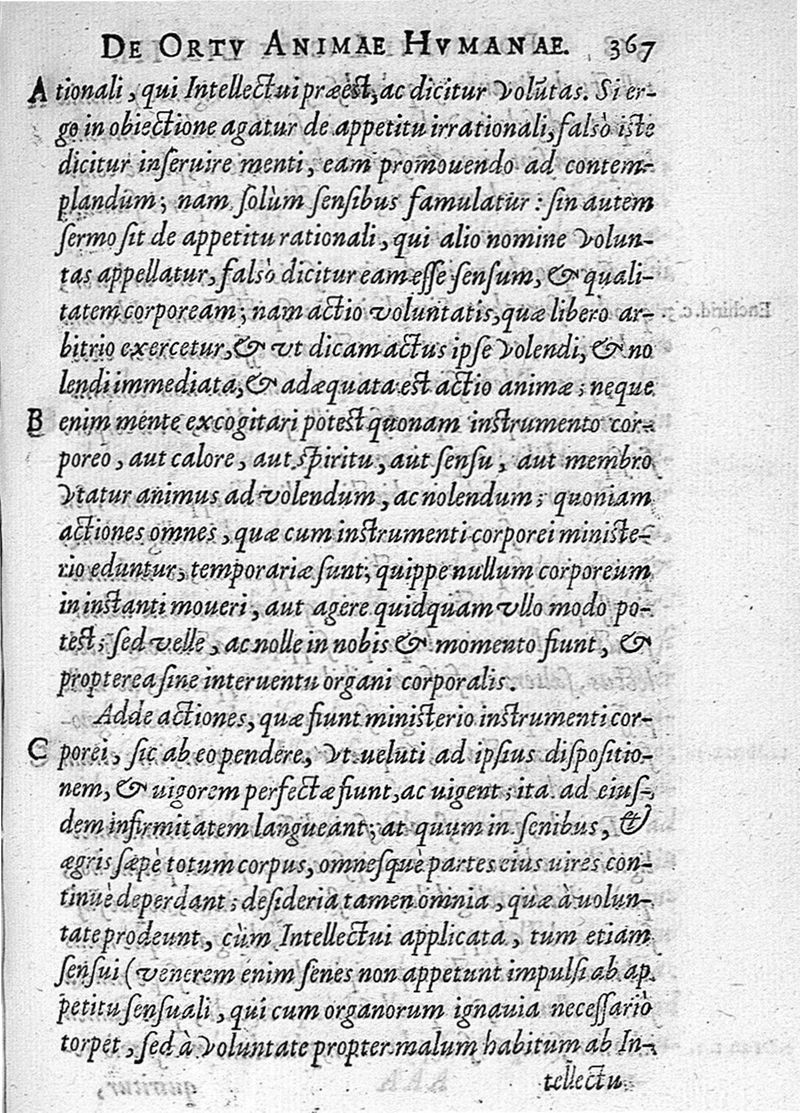 DE ORTV ANIMAE HVMANAE. 367
A tionali, qui Intellectui præest, ac dicitur Volūtas. Si er-
go in obiectione agatur de appetitu irrationali, falsò iste
dicitur inseruire menti, eam promouendo ad contem-
plandum; nam solùm sensibus famulatur: sin autem
sermo sit de appetitu rationali, qui alio nomine Volun-
tas appellatur, falsò dicitur eam esse sensum, & quali-
tatem corpoream; nam actio voluntatis, quæ libero ar-
bitrio exercetur, & vt dicam actus ipse Volendi, & no
lendi immediata, & adæquata est actio animæ; neque
B enim mente excogitari potest quonam instrumento cor-
poreo, aut calore, aut spiritu, aut sensu, aut membro
Vtatur animus ad volendum, ac nolendum; quoniam
actiones omnes, quæ cum instrumenti corporei ministe-
rio eduntur, temporariæ sunt; quippe nullum corporeum
in instanti moueri, aut agere quidquam vllo modo po-
test; sed velle, ac nolle in nobis & momento fiunt, &
propterea sine interuentu organi corporalis.
Adde actiones, quæ fiunt ministerio instrumenti cor-
C porei, sic ab eo pendere, Vt ueluti ad ipsius dispositio-
nem, & uigorem perfectæ fiunt, ac uigent; ita ad eius-
dem infirmitatem langueant; at quum in senibus, &
ægris sæpè totum corpus, omnesquè partes eius uires con-
tinuè deperdant; desideria tamen omnia, quæ à uolun-
tate prodeunt, cùm Intellectui applicata, tum etiam
sensui (venerem enim senes non appetunt impulsi ab ap
petitu sensuali, qui cum organorum ignauia necessariò
torpet, sed à Voluntate propter malum habitum ab In-
tellectu